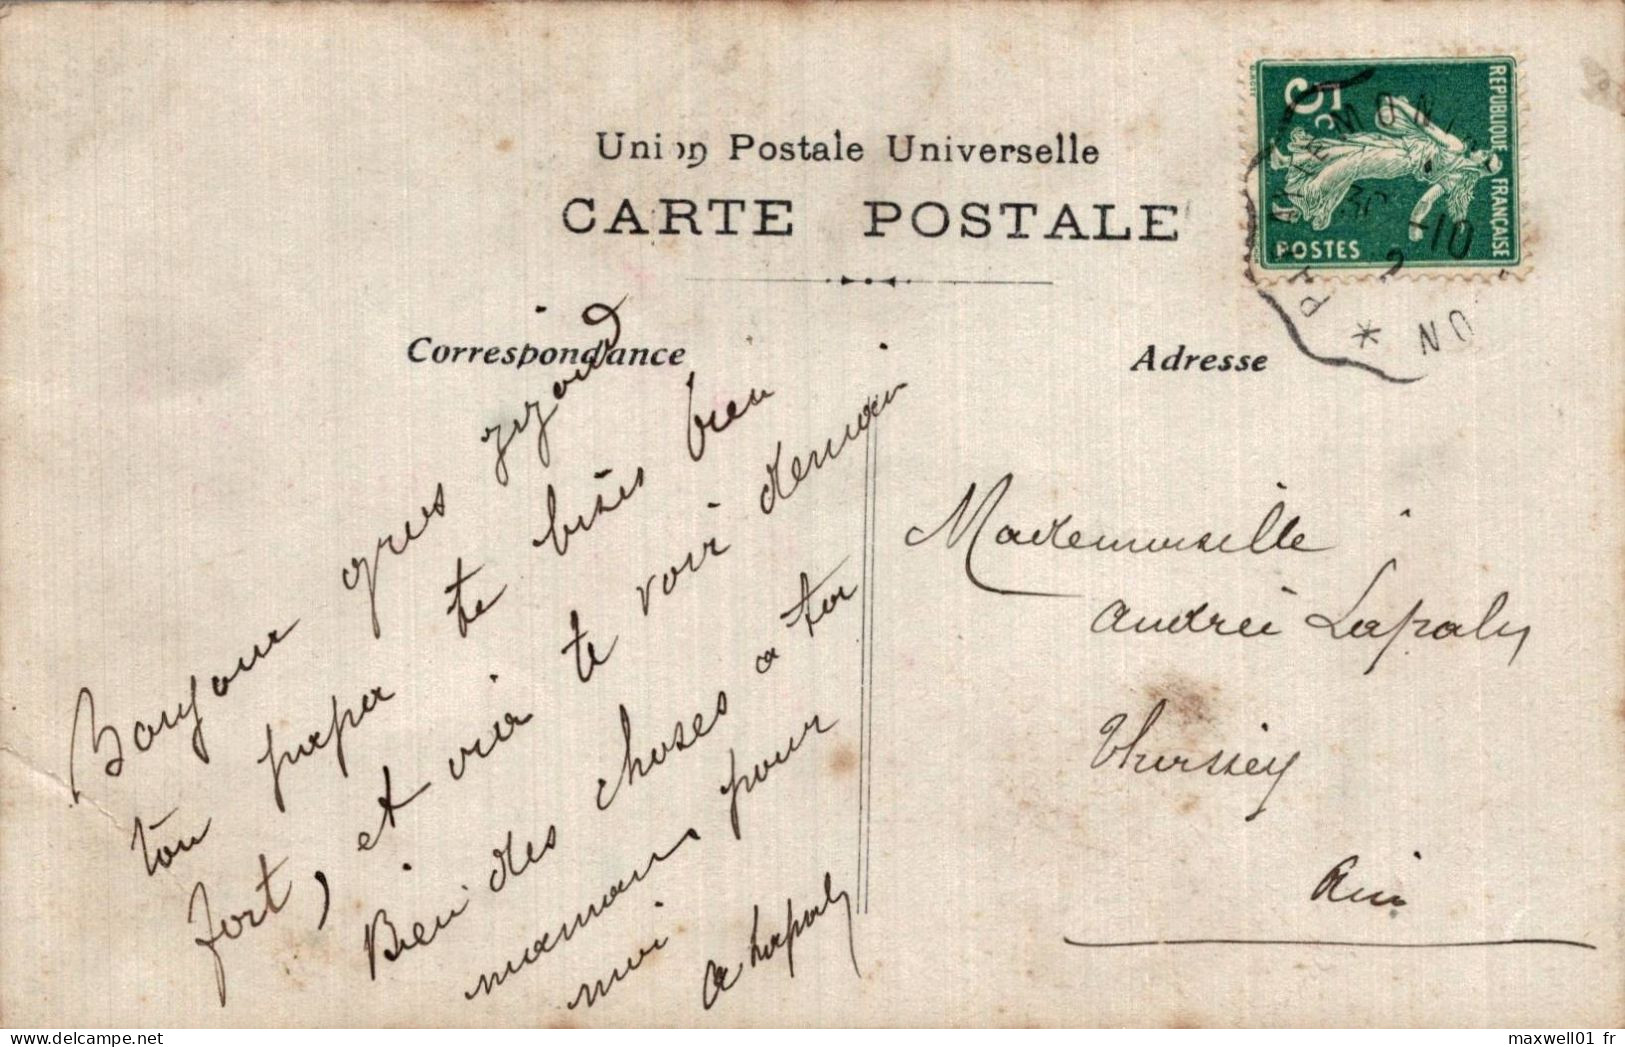 Union Postale Universelle
CARTE POSTALE
Correspondance
Adresse
REPUBLIQUE FRANÇAISE
5c
POSTES
PARAY-LE-MONI
30
2 -10
ON
Bonjour gros
ton papa te bises bien
fort, et vien te voir demain
Bien des choses a ta
maman pour
moi
A Lapaly
Mademoiselle
Andrée Lapaly
Thurssey
Ain
maxwell01 fr